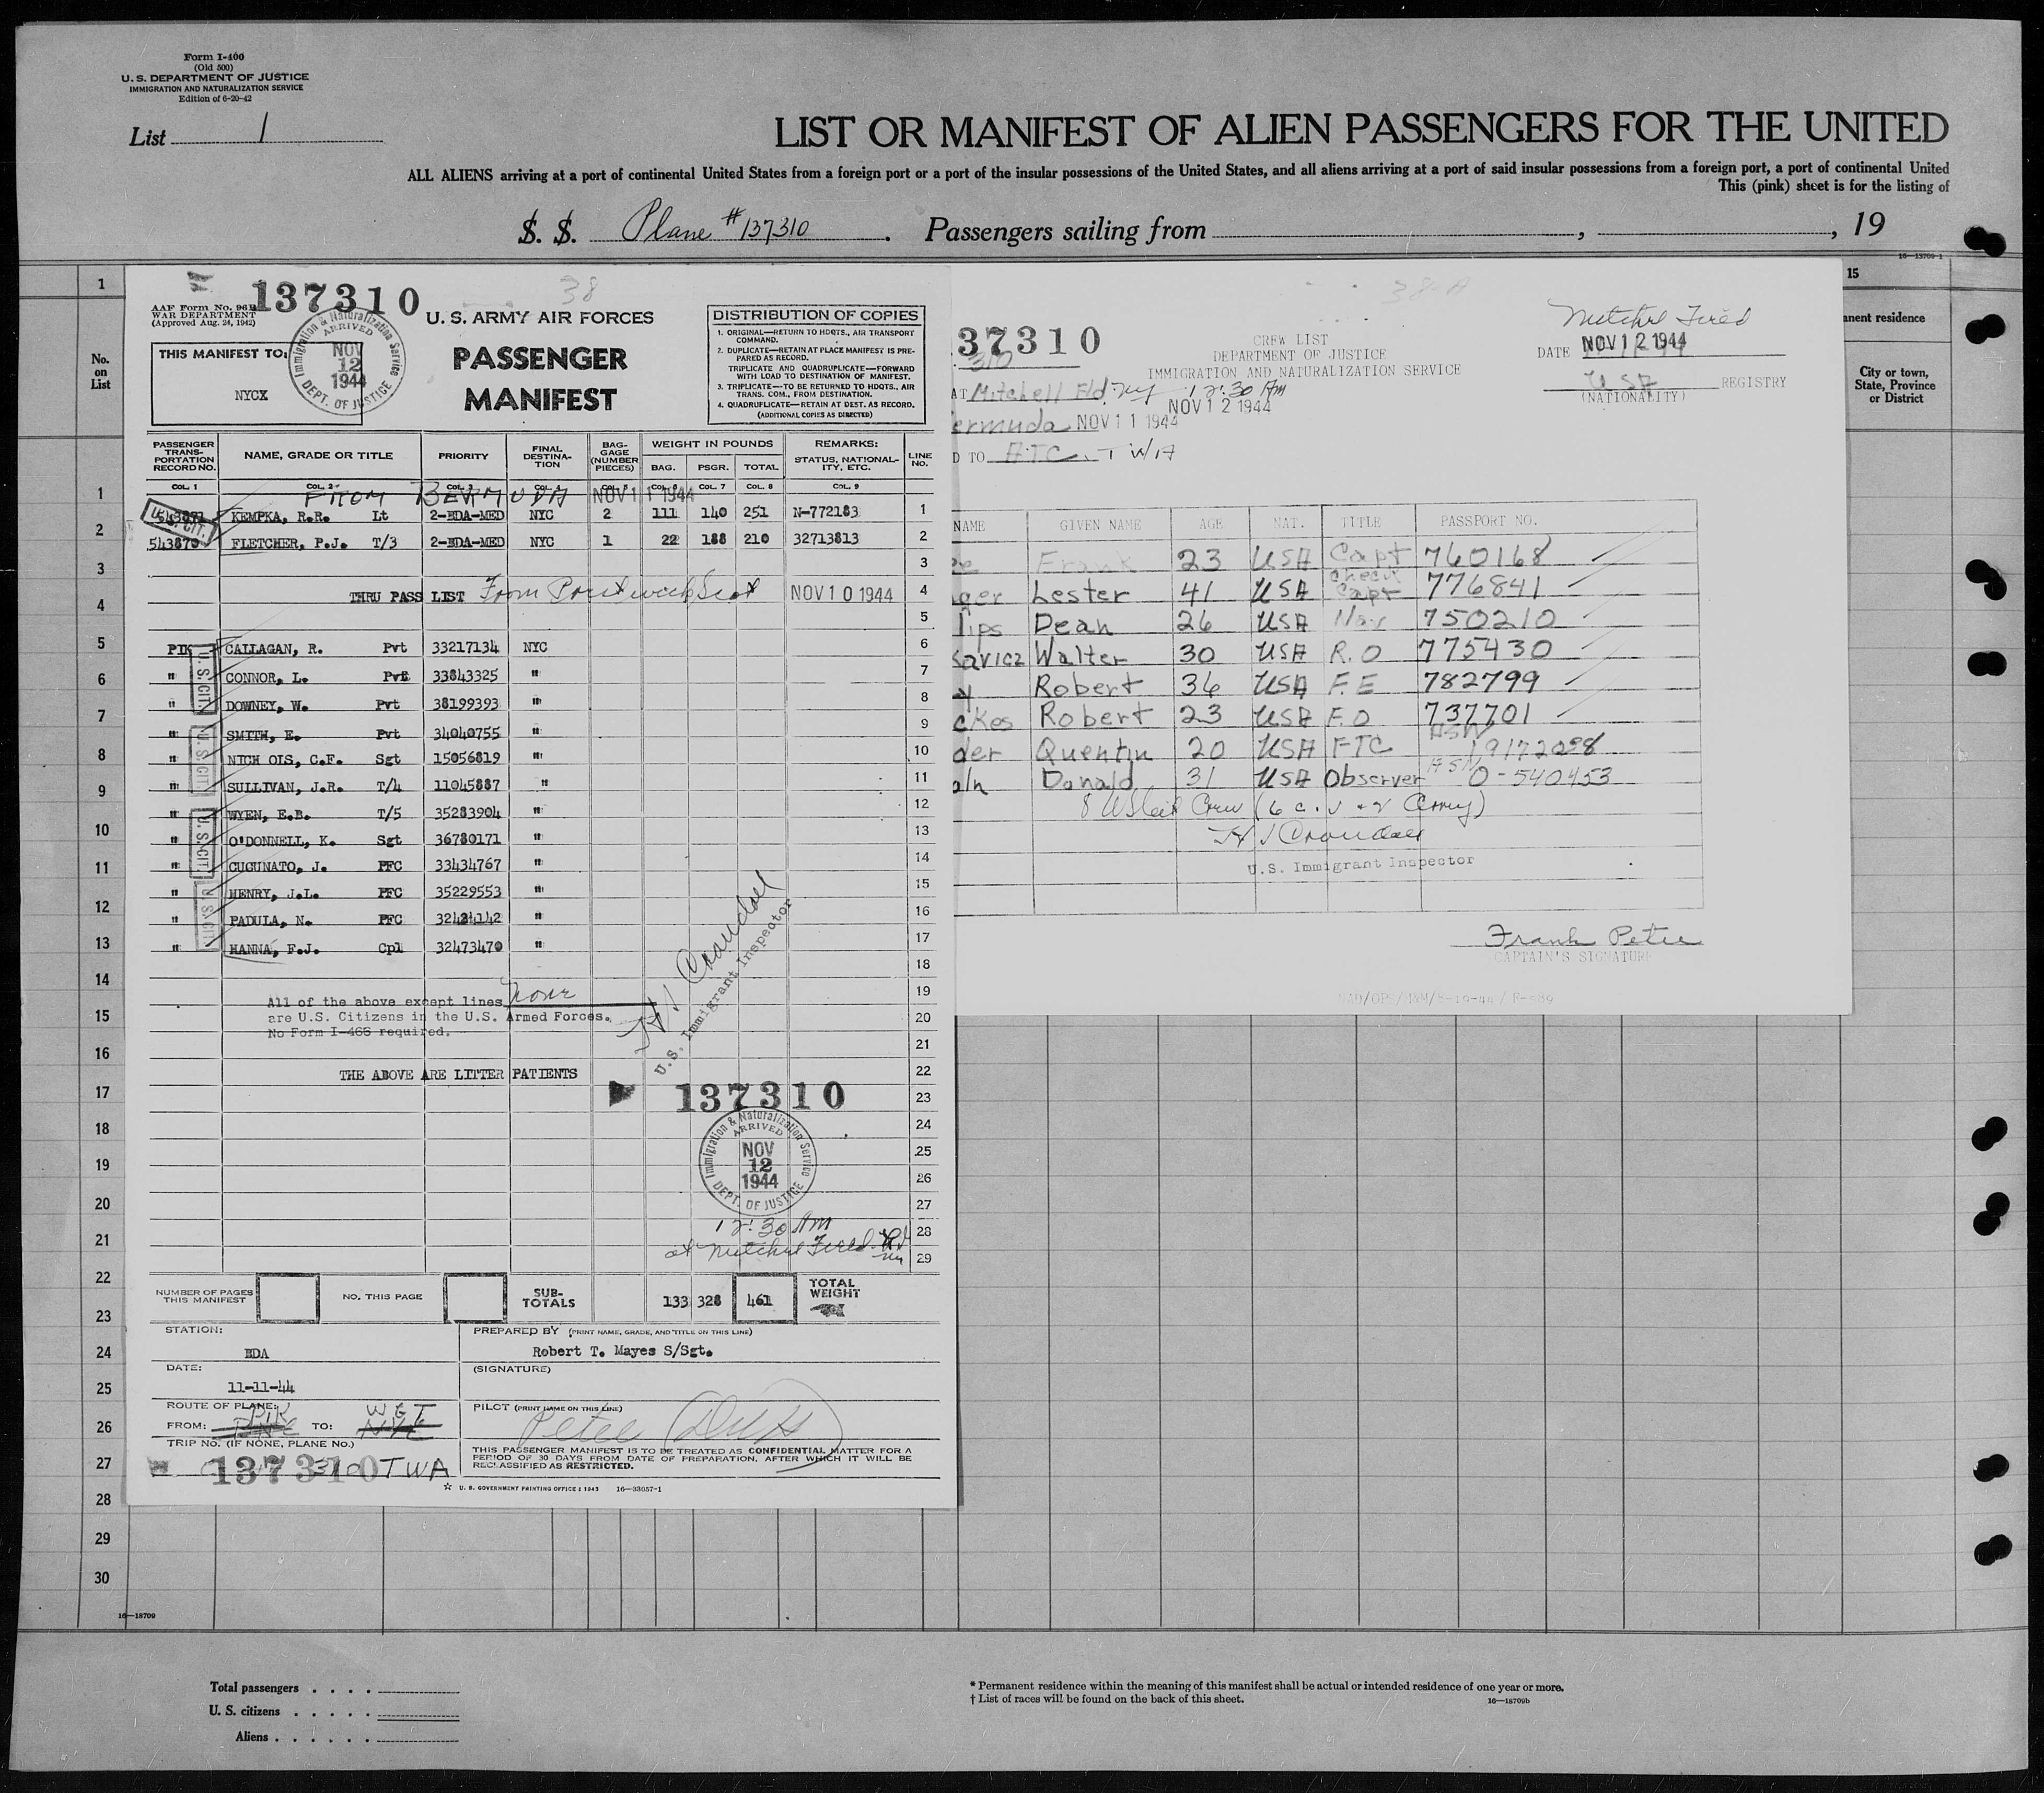 Form I-400
(Old 500)
U. S. DEPARTMENT OF JUSTICE
IMMIGRATION AND NATURALIZATION SERVICE
Edition of 6-20-42
List 1
LIST OR MANIFEST OF ALIEN PASSENGERS FOR THE UNITED
ALL ALIENS arriving at a port of continental United States from a foreign port or a port of the insular possessions of the United States, and all aliens arriving at a port of said insular possessions from a foreign port, a port of continental United
This (pink) sheet is for the listing of
S. S. Plane #137310. Passengers sailing from , , 19
16—18709-1
No. on List
1
2
3
4
5
6
7
8
9
10
11
12
13
14
15
16
17
18
19
20
21
22
23
24
25
26
27
28
29
30
16—18709
137310
38
AAF Form No. 96B
WAR DEPARTMENT
(Approved Aug. 24, 1942)
U. S. ARMY AIR FORCES
PASSENGER
MANIFEST
THIS MANIFEST TO:
NYCX
Immigration & Naturalization Service
ARRIVED
NOV
12
1944
DEPT. OF JUSTICE
DISTRIBUTION OF COPIES
1. ORIGINAL—RETURN TO HDQTS., AIR TRANSPORT COMMAND.
2. DUPLICATE—RETAIN AT PLACE MANIFEST IS PREPARED AS RECORD.
TRIPLICATE AND QUADRUPLICATE—FORWARD WITH LOAD TO DESTINATION OF MANIFEST.
3. TRIPLICATE—TO BE RETURNED TO HDQTS., AIR TRANS. COM., FROM DESTINATION.
4. QUADRUPLICATE—RETAIN AT DEST. AS RECORD.
(ADDITIONAL COPIES AS DIRECTED)
PASSENGER TRANSPORTATION RECORD NO. NAME, GRADE OR TITLE PRIORITY FINAL DESTINATION BAGGAGE (NUMBER PIECES) WEIGHT IN POUNDS BAG. PSGR. TOTAL REMARKS: STATUS, NATIONALITY, ETC. LINE NO.
COL. 1 COL. 2 COL. 3 COL. 4 COL. 5 COL. 6 COL. 7 COL. 8 COL. 9
FROM BERMUDA NOV 11 1944
543871 KEMPKA, R.R. Lt 2-BDA-MED NYC 2 111 140 251 N-772183 1
U.S. CIT.
543870 FLETCHER, P.J. T/3 2-BDA-MED NYC 1 22 188 210 32713813 2
3
THRU PASS LIST From Prestwick Scot NOV 10 1944 4
5
PIK CALLAGAN, R. Pvt 33217134 NYC 6
" CONNOR, L. Pvt 33843325 " 7
" DOWNEY, W. Pvt 38199393 " 8
" SMITH, E. Pvt 34040755 " 9
" NICH OIS, C.F. Sgt 15056819 " 10
" SULLIVAN, J.R. T/4 11045887 " 11
" WYEN, E.B. T/5 35283904 " 12
" O'DONNELL, K. Sgt 36780171 " 13
" CUCUNATO, J. PFC 33434767 " 14
" HENRY, J.L. PFC 35229553 " 15
" PADULA, N. PFC 32484142 " 16
" HANNA, F.J. Cpl 32473470 " 17
U. S. CIT.
U. S. CIT.
U. S. CIT.
U. S. CIT.
18
All of the above except lines none 19
are U.S. Citizens in the U.S. Armed Forces. 20
No Form I-466 required.
21
THE ABOVE ARE LITTER PATIENTS 22
H J Crandall
U.S. Immigrant Inspector
137310 23
24
25
26
27
28
29
Immigration & Naturalization Service
ARRIVED
NOV
12
1944
DEPT. OF JUSTICE
12:30 AM
at Mitchel Field
NY
NUMBER OF PAGES THIS MANIFEST NO. THIS PAGE SUB-TOTALS 133 328 461 TOTAL WEIGHT
STATION:
BDA
PREPARED BY (PRINT NAME, GRADE, AND TITLE ON THIS LINE)
Robert T. Mayes S/Sgt.
DATE:
11-11-44
(SIGNATURE)
ROUTE OF PLANE:
FROM: PIK TO:
PILOT (PRINT NAME ON THIS LINE)
Petee
TRIP NO. (IF NONE, PLANE NO.)
137310 310 TWA
THIS PASSENGER MANIFEST IS TO BE TREATED AS CONFIDENTIAL MATTER FOR A PERIOD OF 30 DAYS FROM DATE OF PREPARATION, AFTER WHICH IT WILL BE RECLASSIFIED AS RESTRICTED.
☆ U. S. GOVERNMENT PRINTING OFFICE : 1943 16—33057-1
38-A
37310
310
CREW LIST
DEPARTMENT OF JUSTICE
IMMIGRATION AND NATURALIZATION SERVICE
Mitchel Field
DATE NOV 12 1944
USA REGISTRY
(NATIONALITY)
AT Mitchell Fld. NY 12:30 AM
NOV 12 1944
ermuda NOV 11 1944
D TO ATC. TWA
NAME GIVEN NAME AGE NAT. TITLE PASSPORT NO.
ee Frank 23 USA Capt 760168
ger Lester 41 USA Check Capt 776841
lips Dean 26 USA Nav 750210
kavicz Walter 30 USA R.O 775430
y Robert 36 USA F.E 782799
ckes Robert 23 USA F.O 737701
der Quentin 20 USA FTC ASN 19172098
aln Donald 31 USA Observer ASN O-540453
8 US Cit Crew (6 c. v + 2 Army)
H J Crandall
U.S. Immigrant Inspector
Frank Petee
CAPTAIN'S SIGNATURE
15
anent residence
City or town, State, Province or District
Total passengers
U. S. citizens
Aliens
* Permanent residence within the meaning of this manifest shall be actual or intended residence of one year or more.
† List of races will be found on the back of this sheet.
16—18709b